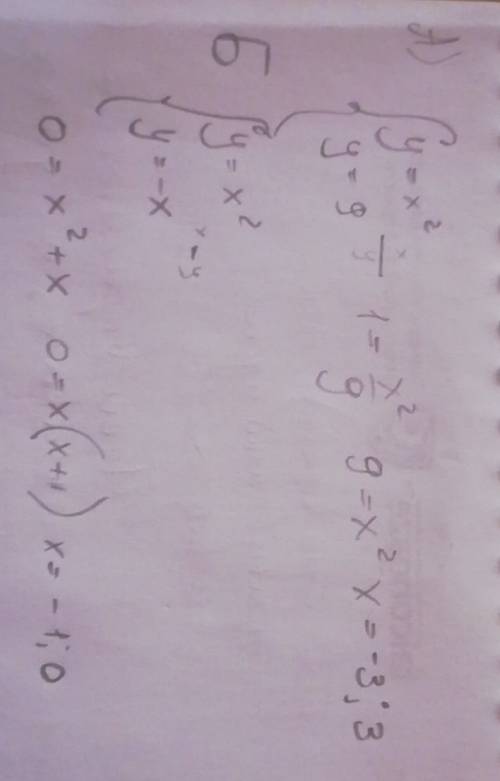 А)
{ y = x²
y = 9 x/y 1 = x²/9 9 = x² x = -3; 3
Б
{ y = x²
y = -x x - y
0 = x² + x 0 = x(x+1) x = -1; 0